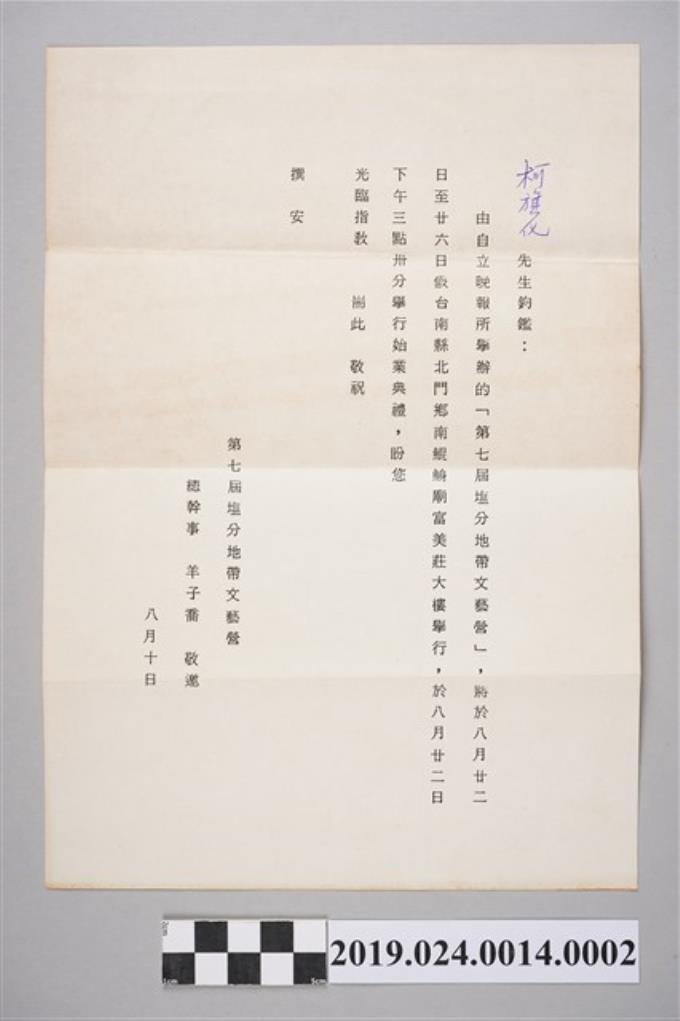 柯旗化先生鈞鑑：
由自立晚報所舉辦的「第七屆塩分地帶文藝營」，將於八月廿二
日至廿六日假台南縣北門鄉南鯤鯓廟富美莊大樓舉行，於八月廿二日
下午三點卅分舉行始業典禮，盼您
光臨指教　　耑此　敬祝
撰　安
第七屆塩分地帶文藝營
總幹事　羊子喬　敬邀
八月十日
2cm
1cm
5cm
2019.024.0014.0002